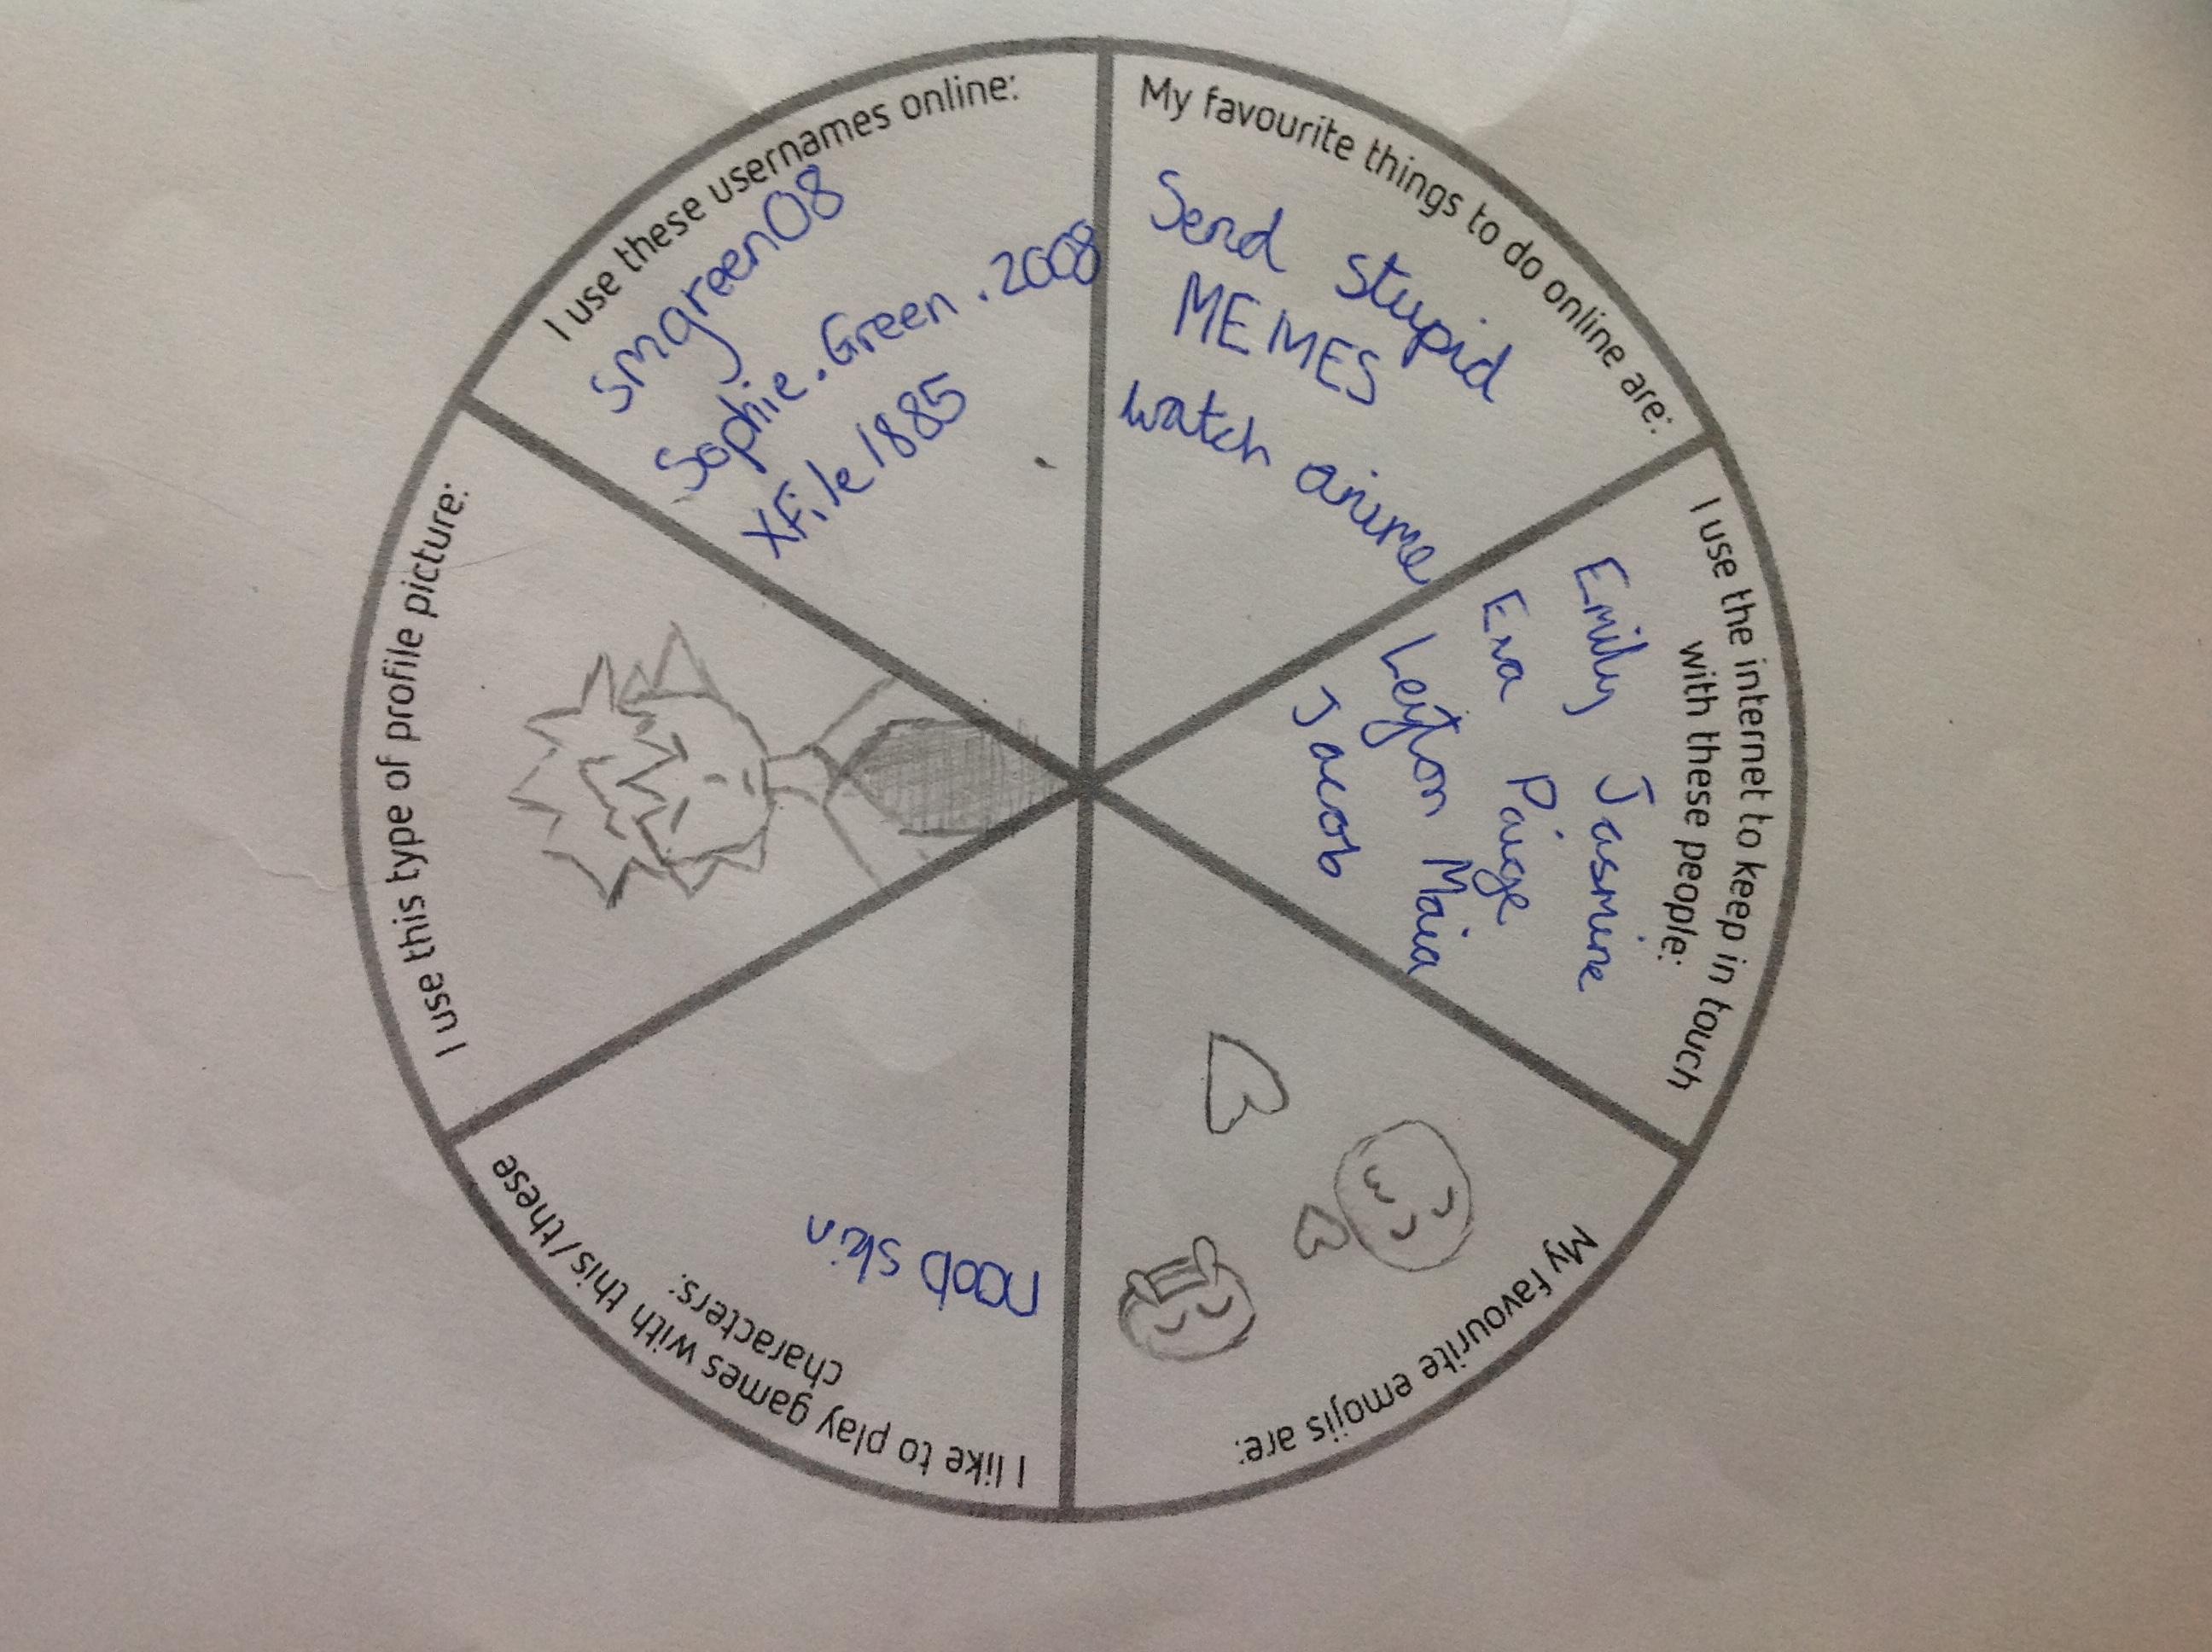 My favourite things to do online are:
Send stupid
MEMES
watch anime
I use the internet to keep in touch
with these people:
Emily Jasmine
Eva Paige
Leyton Maia
Jacob
My favourite emojis are:
I like to play games with this/these
characters:
noob skin
I use this type of profile picture:
I use these usernames online:
smgreen08
Sophie.Green.2008
XFile1885